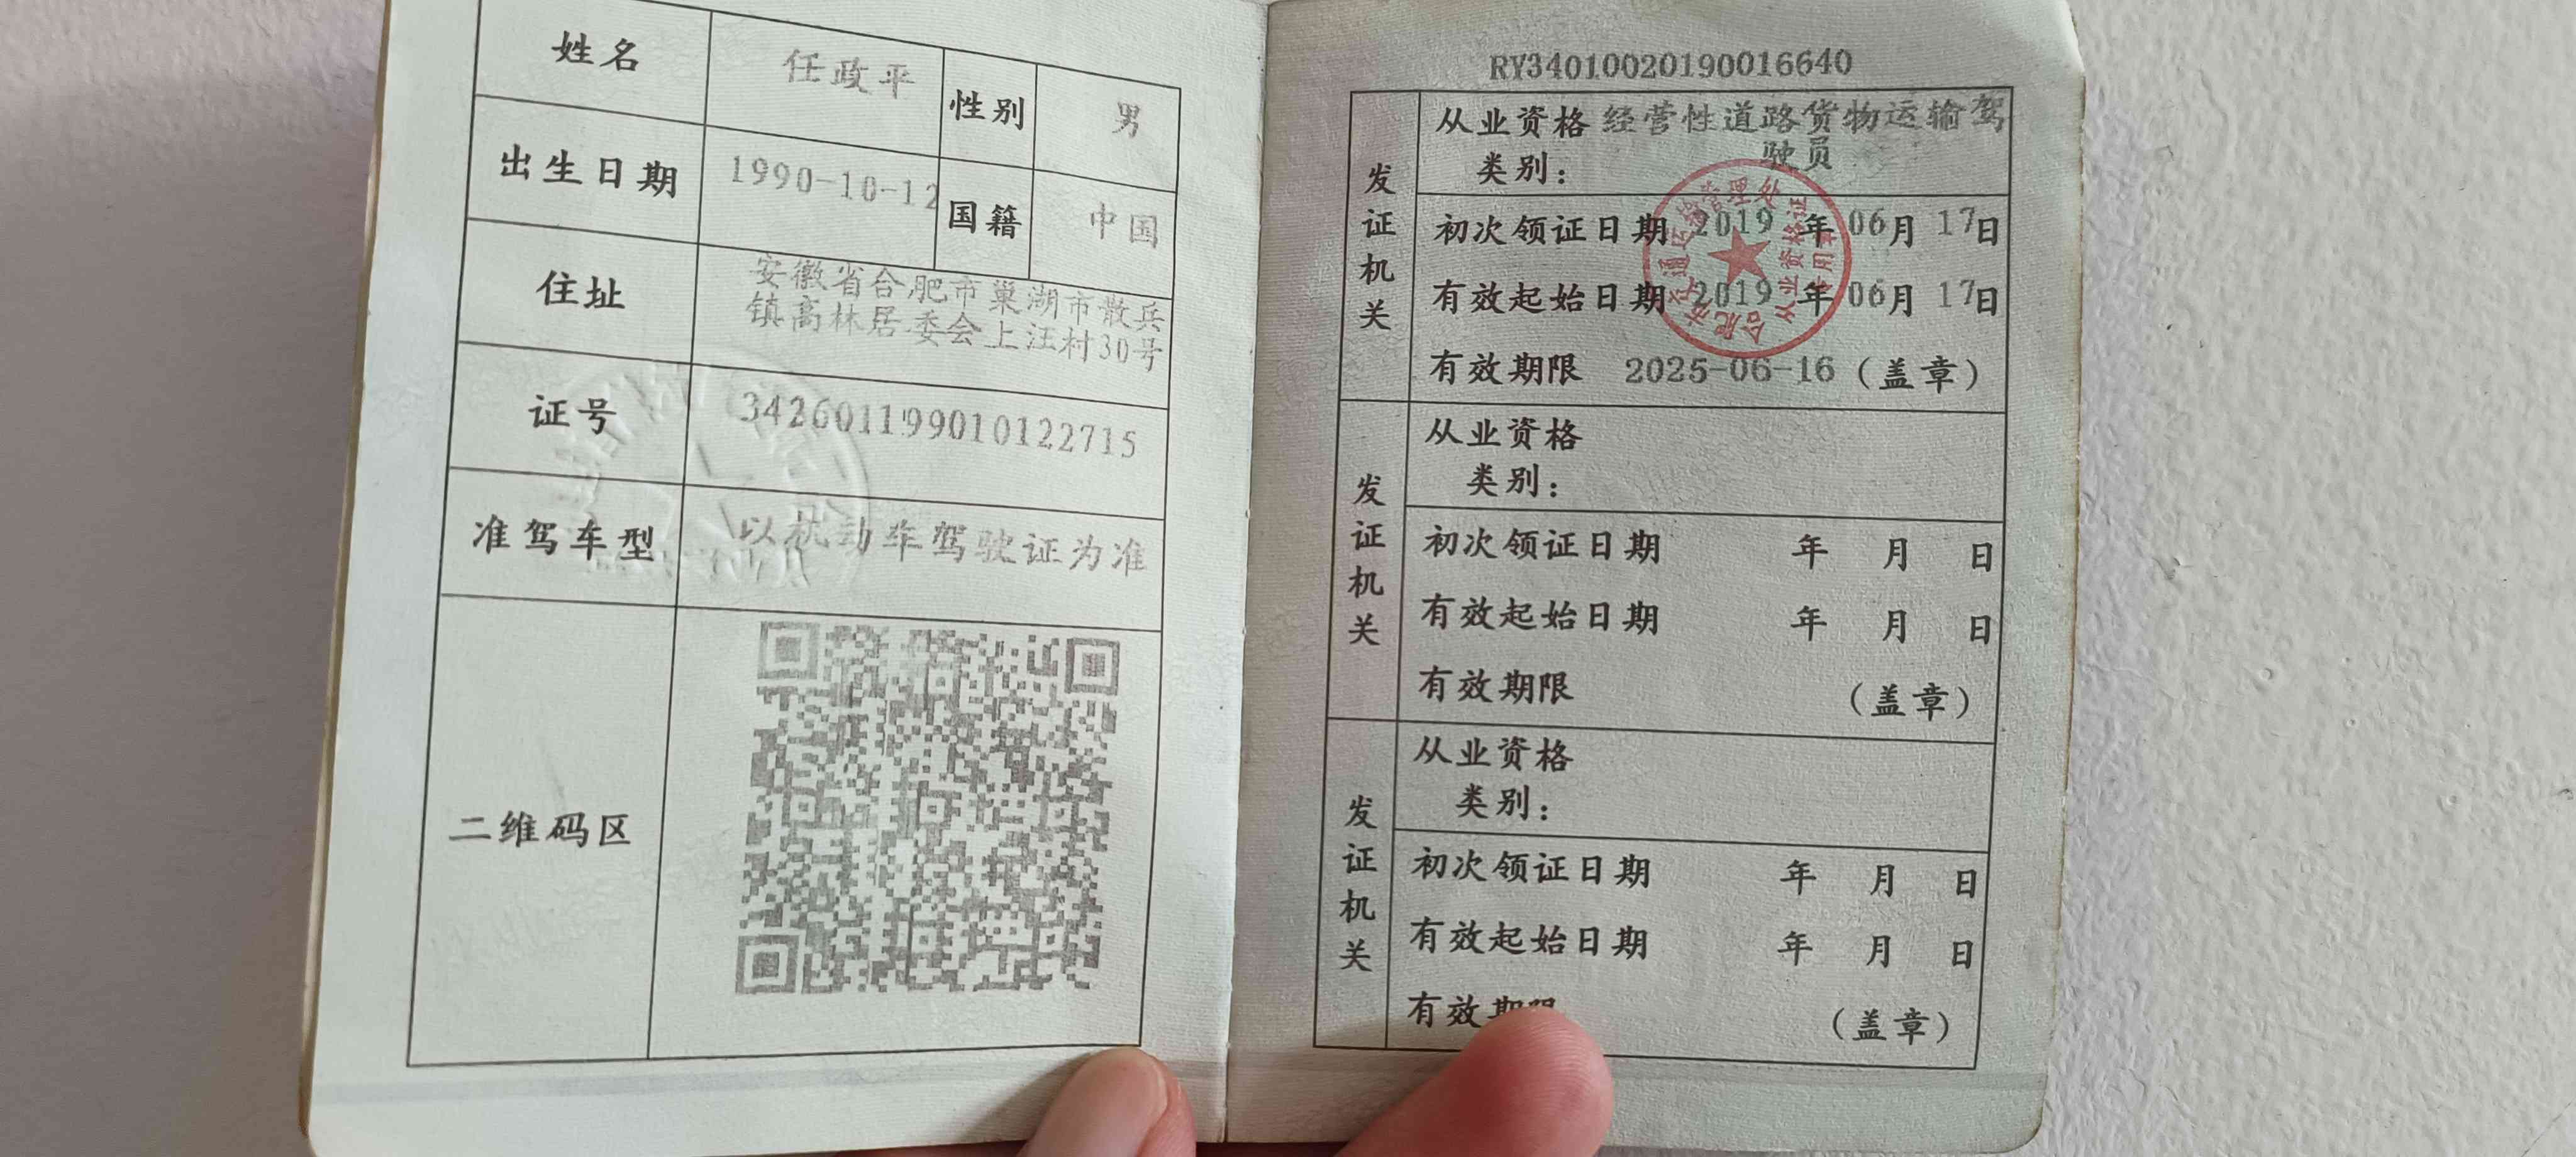 姓名 任政平 性别 男
出生日期 1990-10-12 国籍 中国
住址 安徽省合肥市巢湖市散兵
镇高林居委会上汪村30号
证号 342601199010122715
准驾车型 以机动车驾驶证为准
二维码区
RY34010020190016640
发证机关
从业资格 经营性道路货物运输驾
类别： 驶员
初次领证日期 2019 年 06月 17日
有效起始日期 2019 年 06月 17日
有效期限 2025-06-16 （盖章）
合肥市交通运输管理处
从业资格证
专用章
发证机关
从业资格
类别：
初次领证日期 年 月 日
有效起始日期 年 月 日
有效期限 （盖章）
发证机关
从业资格
类别：
初次领证日期 年 月 日
有效起始日期 年 月 日
有效期限 （盖章）